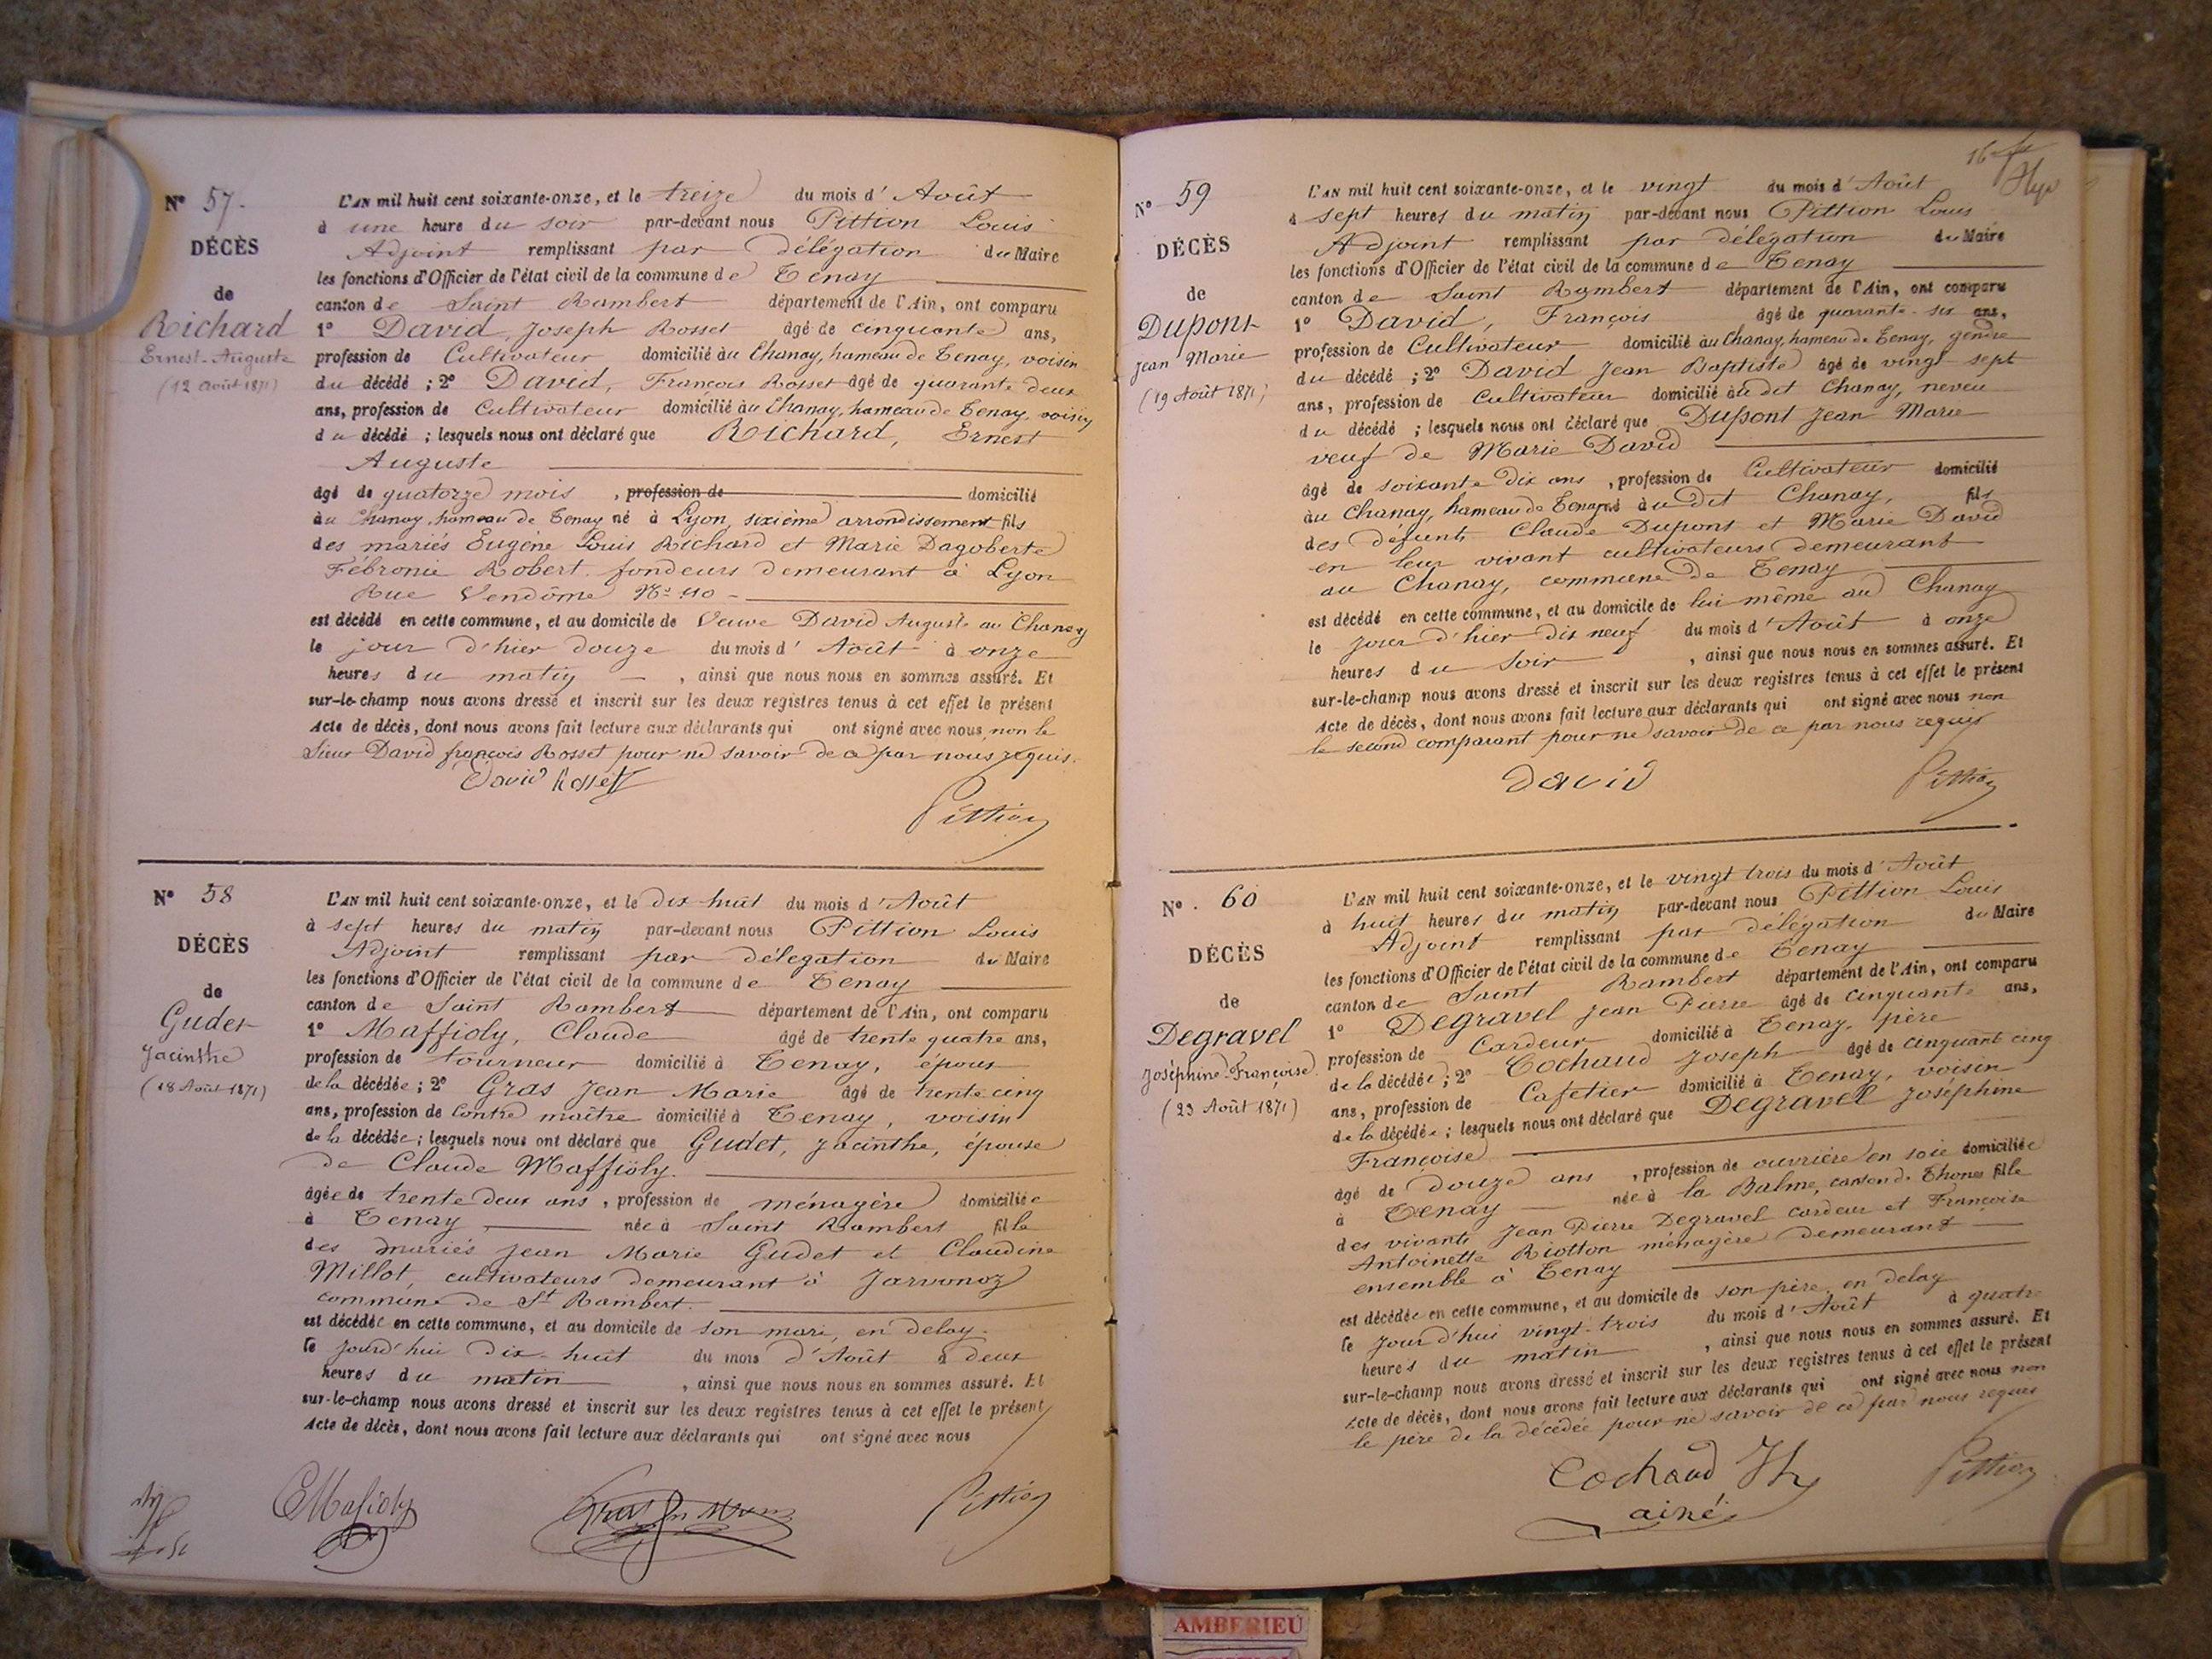 Nº 57.
DÉCÈS
de
Richard
Ernest-Auguste
(12 Août 1871)
L'AN mil huit cent soixante-onze, et le treize du mois d'Août
à une heure du soir par-devant nous Pittion Louis
Adjoint remplissant par délégation du Maire
les fonctions d'Officier de l'état civil de la commune de Tenay
canton de Saint Rambert département de l'Ain, ont comparu
1º David, Joseph Rosset âgé de cinquante ans,
profession de Cultivateur domicilié au Chanay, hameau de Tenay, voisin
du décédé ; 2º David, François Rosset âgé de quarante deux
ans, profession de Cultivateur domicilié au Chanay, hameau de Tenay, voisin
du décédé ; lesquels nous ont déclaré que Richard, Ernest
Auguste
âgé de quatorze mois , profession de domicilié
au Chanay, hameau de Tenay né à Lyon, sixième arrondissement fils
des mariés Eugène Louis Richard et Marie Dagoberte
Fébronie Robert fondeurs demeurant à Lyon
Rue Vendôme Nº 110
est décédé en cette commune, et au domicile de Veuve David Auguste au Chanay
le jour d'hier douze du mois d'Août à onze
heures du matin , ainsi que nous nous en sommes assuré. Et
sur-le-champ nous avons dressé et inscrit sur les deux registres tenus à cet effet le présent
Acte de décès, dont nous avons fait lecture aux déclarants qui ont signé avec nous non le
Sieur David françois Rosset pour ne savoir de ce par nous requis.
David Rosset
Pittion
Nº 58
DÉCÈS
de
Gudet
Jacinthe
(18 Août 1871)
L'AN mil huit cent soixante-onze, et le dix-huit du mois d'Août
à sept heures du matin par-devant nous Pittion Louis
Adjoint remplissant par délégation du Maire
les fonctions d'Officier de l'état civil de la commune de Tenay
canton de Saint Rambert département de l'Ain, ont comparu
1º Maffioly, Claude âgé de trente quatre ans,
profession de tourneur domicilié à Tenay, époux
de la décédée ; 2º Gras Jean Marie âgé de trente cinq
ans, profession de Contre maître domicilié à Tenay, voisin
de la décédée ; lesquels nous ont déclaré que Gudet, Jacinthe, épouse
de Claude Maffioly.
âgée de trente deux ans , profession de ménagère domiciliée
à Tenay, née à Saint Rambert fille
des mariés Jean Marie Gudet et Claudine
Millot, cultivateurs demeurant à Javornoz
commune de St Rambert.
est décédée en cette commune, et au domicile de son mari, en delay.
le jourd'hui dix-huit du mois d'Août à deux
heures du matin , ainsi que nous nous en sommes assuré. Et
sur-le-champ nous avons dressé et inscrit sur les deux registres tenus à cet effet le présent
Acte de décès, dont nous avons fait lecture aux déclarants qui ont signé avec nous
CMafioly
Gras Jn Marie
Pittion
16
Nº 59
DÉCÈS
de
Dupont
Jean Marie
(19 Août 1871)
L'AN mil huit cent soixante-onze, et le vingt du mois d'Août
à sept heures du matin par-devant nous Pittion Louis
Adjoint remplissant par délégation du Maire
les fonctions d'Officier de l'état civil de la commune de Tenay
canton de Saint Rambert département de l'Ain, ont comparu
1º David, François âgé de quarante-six ans,
profession de Cultivateur domicilié au Chanay, hameau de Tenay, gendre
du décédé ; 2º David Jean Baptiste âgé de vingt sept
ans, profession de Cultivateur domicilié au dit Chanay, neveu
du décédé ; lesquels nous ont déclaré que Dupont Jean Marie
veuf de Marie David
âgé de soixante dix ans , profession de Cultivateur domicilié
au Chanay, hameau de Tenay né au Dit Chanay, fils
des defunts Claude Dupont et Marie David
en leur vivant cultivateurs demeurant
au Chanay, commune de Tenay
est décédé en cette commune, et au domicile de lui même au Chanay
le jour d'hier dix neuf du mois d'Août à onze
heures du soir , ainsi que nous nous en sommes assuré. Et
sur-le-champ nous avons dressé et inscrit sur les deux registres tenus à cet effet le présent
Acte de décès, dont nous avons fait lecture aux déclarants qui ont signé avec nous non
le second comparant pour ne savoir de ce par nous requis
David
Pittion
Nº 60
DÉCÈS
de
Degravel
Joséphine-Françoise
(23 Août 1871)
L'AN mil huit cent soixante-onze, et le vingt trois du mois d'Août
à huit heures du matin par-devant nous Pittion Louis
Adjoint remplissant par délégation du Maire
les fonctions d'Officier de l'état civil de la commune de Tenay
canton de Saint Rambert département de l'Ain, ont comparu
1º Degravel Jean Pierre âgé de cinquante ans,
profession de Cardeur domicilié à Tenay, père
de la décédée ; 2º Cochaud Joseph âgé de cinquant cinq
ans, profession de Cafetier domicilié à Tenay, voisin
de la décédée ; lesquels nous ont déclaré que Degravel Joséphine
Françoise
âgé de douze ans , profession de ouvrière en soie domiciliée
à Tenay née à la Balme, canton de Thones fille
des vivants Jean Pierre Degravel cardeur et Françoise
Antoinette Riotton ménagère demeurant
ensemble à Tenay
est décédée en cette commune, et au domicile de son père, en delay
le jourd'hui vingt-trois du mois d'Août à quatre
heures du matin , ainsi que nous nous en sommes assuré. Et
sur-le-champ nous avons dressé et inscrit sur les deux registres tenus à cet effet le présent
Acte de décès, dont nous avons fait lecture aux déclarants qui ont signé avec nous non
le père de la décédée pour ne savoir de ce par nous requis
Cochaud Jh
ainé
Pittion
AMBERIEU